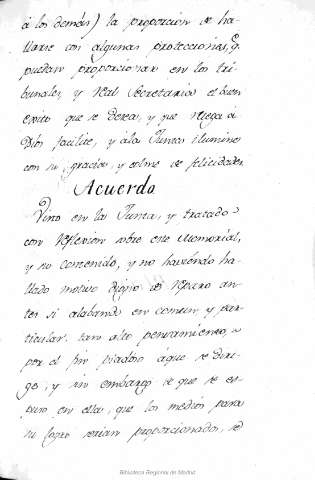 á los demás) la proporcion de ha-
llarse con algunas protecciones, q.
puedan proporcionar en los tri-
bunales, y Real Secretaria el buen
exito que se desea, y que ruega á
Dios facilite, y á la Junta ilumine
con su gracia, y colme de felicidades
Acuerdo
Visto en la Junta, y tratado
con reflexion sobre este Memorial,
y su contenido, y no haviendo ha-
llado motivo digno de reparo an-
tes si alabando en comun y par-
ticular tan alto pensamiento,
por el fin piadoso á que se diri-
ge, y sin embargo de que se es-
puso en ella, que los medios para
su logro serian proporcionados, se
Biblioteca Regional de Madrid